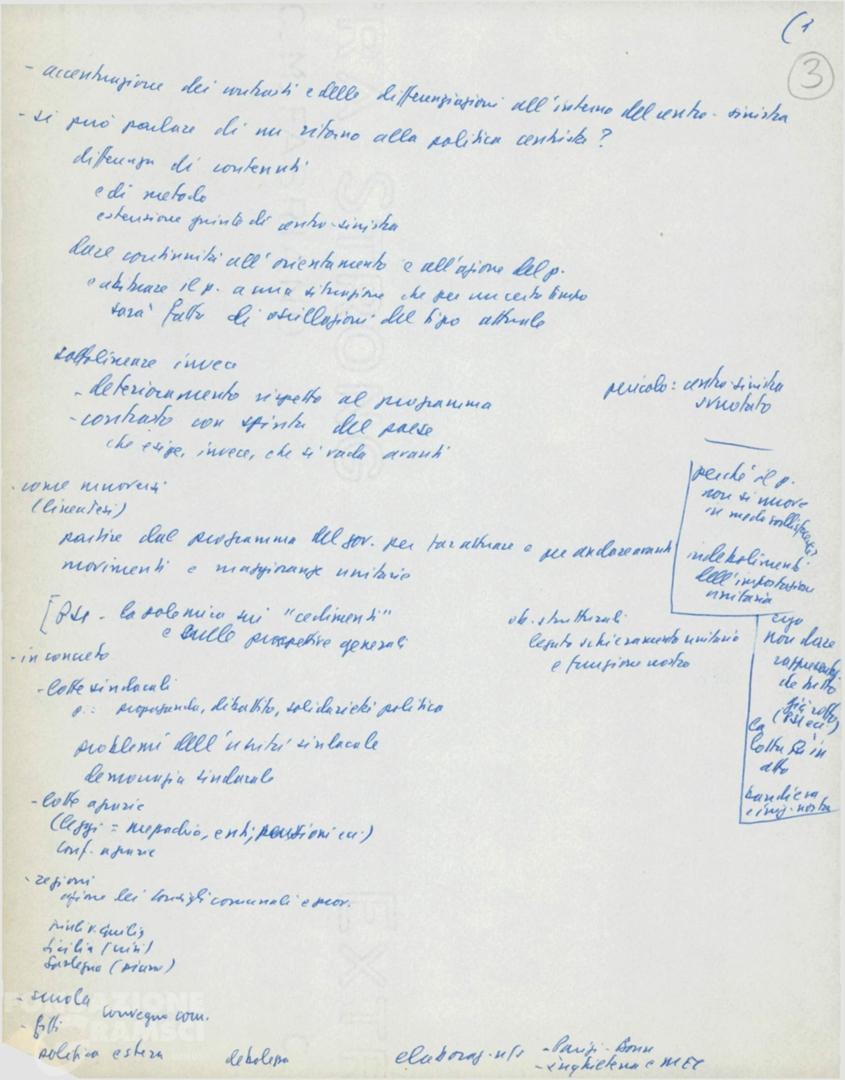 (1
3
- accentuazione dei contrasti e delle differenziazioni all'interno del centro-sinistra
- si può parlare di un ritorno alla politica centrista?
differenza di contenuti
e di metodo
estensione giunte di centro-sinistra
dare continuità all'orientamento e all'azione del p.
e abituare il p. a una situazione che per un certo tempo
sarà fatta di oscillazioni del tipo attuale
sottolineare invece
- deterioramento rispetto al programma
- contrasto con spinta del paese
che esige, invece, che si vada avanti
pericolo: centro-sinistra
svuotato
- come muoversi
(linea tesi)
partire dal programma del gov. per far attuare e per andare avanti
movimenti e maggioranze unitarie
perché il p.
non si muove
in modo
indebolimenti
dell'impostazione
unitaria
[PSI - la polemica sui "cedimenti"
e sulle prospettive generali
ob. strutturali
legato schieramento unitario
e funzione nostra
non dare
rappresentaz.
de tutto
già rotto
(PSI ecc.)
la
lotta è in
atto
bandiera
e ini. nostra
- in concreto
- lotte sindacali
p.: propaganda, dibattito, solidarietà politica
problemi dell'unità sindacale
democrazia sindacale
- lotte agrarie
(leggi = mezzadria, enti, pensioni ecc.)
conf. agrarie
- regioni
azione dei consigli comunali e prov.
Friuli V. Giulia
Sicilia (crisi)
Sardegna (piano)
- scuola
convegno com.
- fitti
politica estera
debolezza
elaboraz. n/s
- Parigi-Bonn
- Inghilterra e MEC
FONDAZIONE
GRAMSCI